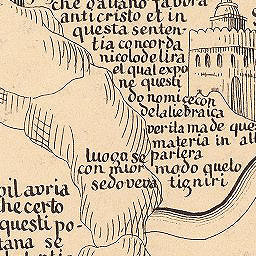 che davano favora
anticristo et in
questa senten-
tia concorda
nicolodelira
el qual expo
ne questi
do nomi cecon
delalie braica
verita ma de que
materia in al
luogo se parlera
con mior modo quelo
sedoveva tigniri
pil avria
che certo
questi po-
tana se